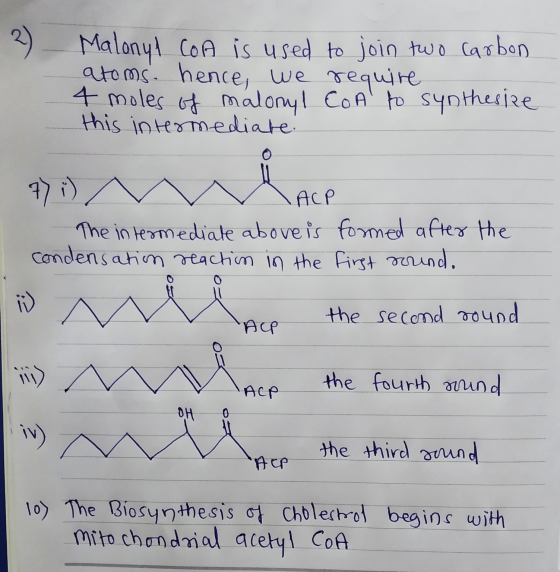 2) Malonyl CoA is used to join two carbon
atoms. hence, we require
4 moles of malonyl CoA to synthesize
this intermediate.
O
7) i) ACP
The intermediate above is formed after the
condensation reaction in the first round.
O O
ii) ACP the second round
O
iii) ACP the fourth round
OH O
iv) ACP the third round
10) The Biosynthesis of Cholestrol begins with
mitochondrial acetyl CoA